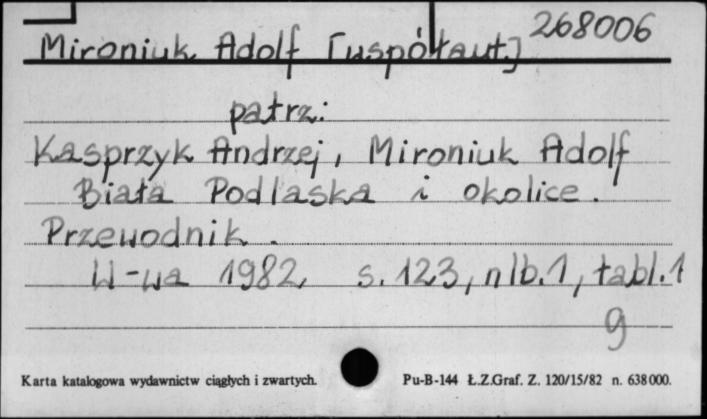 268006
Mironiuk Adolf [współaut.]
patrz:
Kasprzyk Andrzej, Mironiuk Adolf
Biała Podlaska i okolice.
Przewodnik.
W-wa 1982, s. 123, nlb. 1, tabl. 1
g
Karta katalogowa wydawnictw ciągłych i zwartych. Pu-B-144 Ł.Z.Graf. Z. 120/15/82 n. 638000.